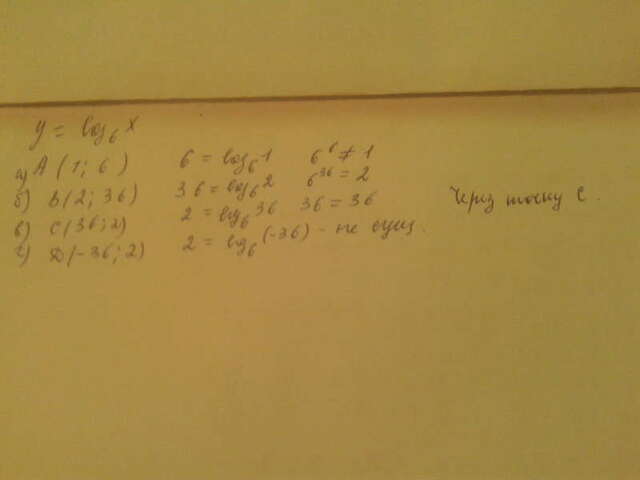 y = log₆ x
а) A (1; 6) 6 = log₆ 1 6⁶ ≠ 1
б) B (2; 36) 36 = log₆ 2 6³⁶ = 2
в) C (36; 2) 2 = log₆ 36 36 = 36 Через точку C.
г) D (-36; 2) 2 = log₆ (-36) - не сущ.